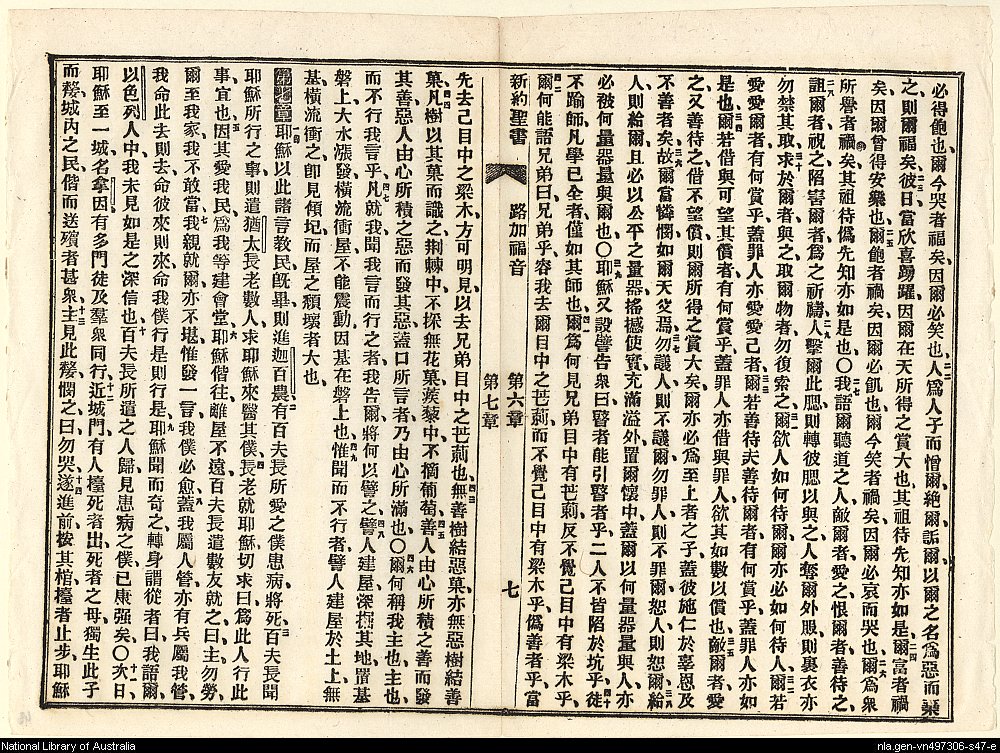 必得飽也爾今哭者福矣因爾必笑也人爲人子而憎爾絕爾詬爾以爾之名爲惡而棄
之則爾福矣彼日當欣喜踴躍因爾在天所得之賞大也其祖待先知亦如是爾富者禍
矣因爾曾得安樂也爾飽者禍矣因爾必飢也爾今笑者禍矣因爾必哀而哭也爾爲衆
所譽者禍矣其祖待僞先知亦如是也〇我語爾聽道之人敵爾者愛之恨爾者善待之
詛爾者祝之陷害爾者爲之祈禱人擊爾此腮則轉彼腮以與之人奪爾外服則裏衣亦
勿禁其取求於爾者與之取爾物者勿復索之爾欲人如何待爾爾亦必如何待人爾若
愛愛爾者有何賞乎蓋罪人亦愛愛己者爾若善待夫善待爾者有何賞乎蓋罪人亦如
是也爾若借與可望其償者有何賞乎蓋罪人亦借與罪人欲其如數以償也敵爾者愛
之又善待之借不望償則爾所得之賞大矣爾亦必爲至上者之子蓋彼施仁於辜恩及
不善者矣故爾當憐憫如爾天父焉勿議人則不議爾勿罪人則不罪爾恕人則恕爾給
人則給爾且必以公平之量器搖撼使實充滿溢外置爾懷中蓋爾以何量器量與人亦
必被何量器量與爾也〇耶穌又設譬告衆曰瞽者能引瞽者乎二人不皆陷於坑乎徒
不踰師凡學已全者僅如其師也爾爲何見兄弟目中有芒莿反不覺己目中有梁木乎
爾何能語兄弟曰兄弟乎容我去爾目中之芒莿而不覺己目中有梁木乎僞善者乎當
新約聖書 路加福音 第六章 七
第七章
先去己目中之梁木方可明見以去兄弟目中之芒莿也無善樹結惡菓亦無惡樹結善
菓凡樹以其菓而識之荆棘中不採無花菓蒺藜中不摘葡萄善人由心所積之善而發
其善惡人由心所積之惡而發其惡蓋口所言者乃由心所滿也〇爾何稱我主也主也
而不行我言乎凡就我聞我言而行之者我告爾將何以譬之譬人建屋深掘其地置基
磐上大水漲發橫流衝屋不能震動因基在磐上也惟聞而不行者譬人建屋於土上無
基橫流衝之卽見傾圮而屋之頹壞者大也
第七章耶穌以此諸言教民旣畢則進迦百農有百夫長所愛之僕患病將死百夫長聞
耶穌所行之事則遣猶太長老數人求耶穌來醫其僕長老就耶穌切求曰爲此人行此
事宜也因其愛我民爲我等建會堂耶穌偕往離屋不遠百夫長遣數友就之曰主勿勞
爾至我家我不敢當我親就爾亦不堪惟發一言我僕必愈蓋我屬人管亦有兵屬我管
我命此去則去命彼來則來命我僕行是則行是耶穌聞而奇之轉身謂從者曰我語爾
以色列人中我未見如是之深信也百夫長所遣之人歸見患病之僕已康强矣〇次日
耶穌至一城名拿因有多門徒及羣衆同行近城門有人擡死者出死者之母獨生此子
而嫠城內之民偕而送殯者甚衆主見此嫠憫之曰勿哭遂進前按其棺擡者止步耶穌
National Library of Australia
nla.gen-vn497306-s47-e